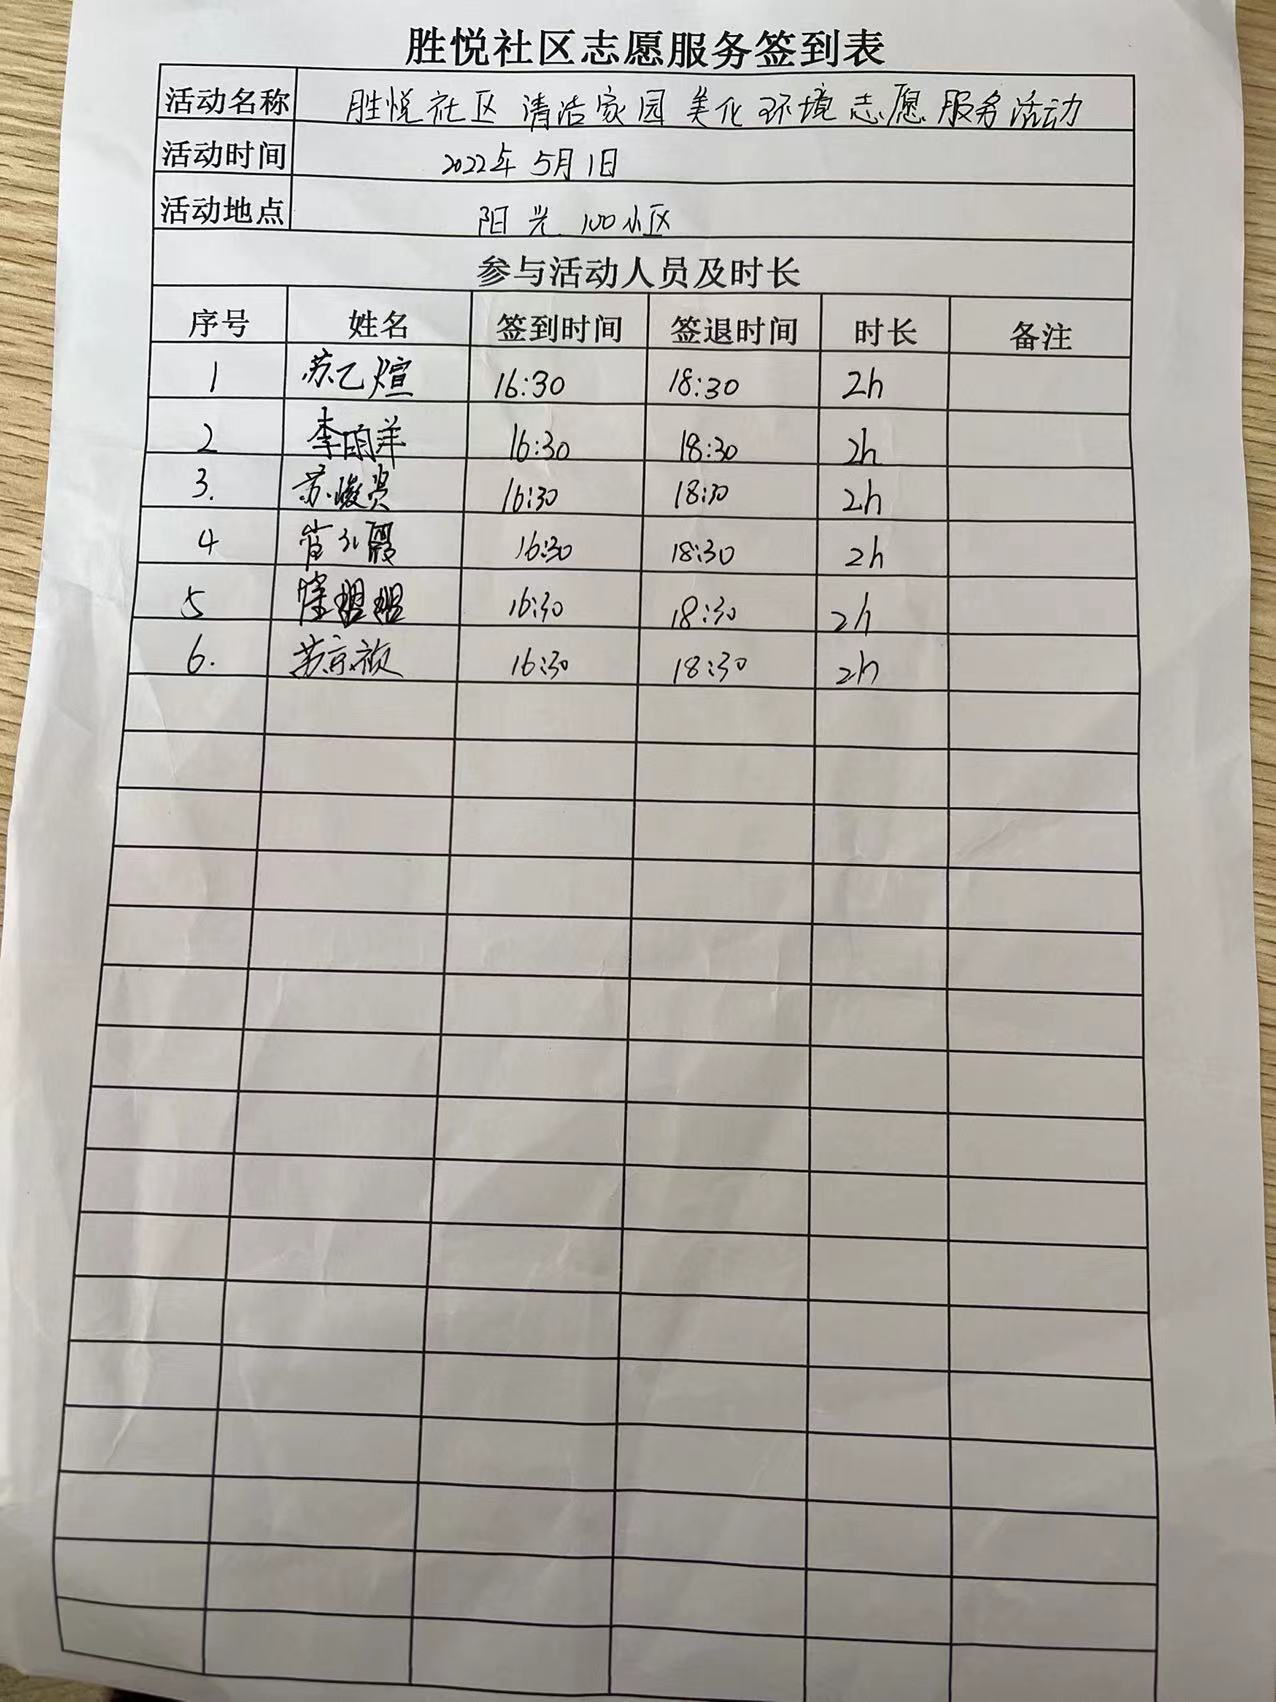 胜悦社区志愿服务签到表
活动名称 胜悦社区清洁家园美化环境志愿服务活动
活动时间 2022年5月1日
活动地点 阳光100小区
参与活动人员及时长
序号 姓名 签到时间 签退时间 时长 备注
1 苏乙煊 16:30 18:30 2h
2 李雨洋 16:30 18:30 2h
3. 苏峻贤 16:30 18:30 2h
4 16:30 18:30 2h
5 16:30 18:30 2h
6. 苏京祯 16:30 18:30 2h